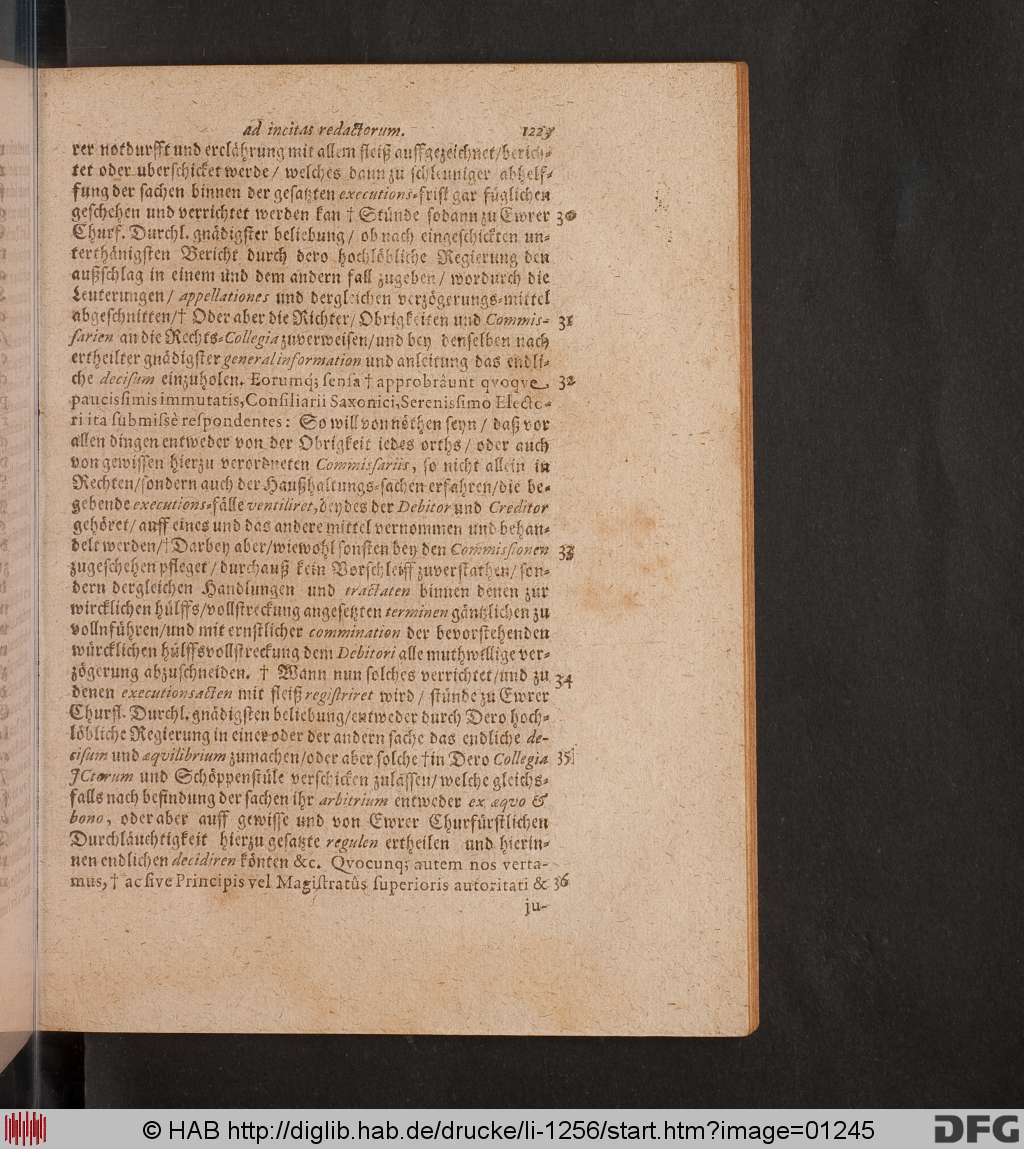 ad incitas redactorum. 1227
rer notdurfft und erclährung mit allem fleiß auffgezeichnet/berich-
tet oder uberschicket werde/ welches dann zu schleuniger abhelf-
fung der sachen binnen der gesatzten executions-frist gar füglichen
geschehen und verrichtet werden kan † Stünde sodann zu Ewrer 30
Churf. Durchl. gnädigster beliebung/ ob nach eingeschickten un-
terthänigsten Bericht durch dero hochlöbliche Regierung den
außschlag in einem und dem andern fall zugeben/ wordurch die
Leuterungen/ appellationes und dergleichen verzögerungs-mittel
abgeschnitten/† Oder aber die Richter/ Obrigkeiten und Commis- 31
sarien an die Rechts-Collegia zuverweisen/und bey denselben nach
ertheilter gnädigster general information und anleitung das endli-
che decisum einzuholen. Eorumq; sensa † approbrâunt qvoqve 32
paucissimis immutatis, Consiliarii Saxonici, Serenissimo Electo-
ri ita submissè respondentes: So will vonnöthen seyn/ daß vor
allen dingen entweder von der Obrigkeit iedes orths/ oder auch
von gewissen hierzu verordneten Commissariis, so nicht allein in
Rechten/sondern auch der Haußhaltungs-sachen erfahren/die be-
gebende executions-fälle ventiliret, beydes der Debitor und Creditor
gehöret/ auff eines und das andere mittel vernommen und behan-
delt werden/†Darbey aber/wiewohl sonsten bey den Commissionen 33
zugeschehen pfleget/ durchauß kein Vorschleiff zuverstathen/ son-
dern dergleichen Handlungen und tractaten binnen denen zur
wircklichen hülffs/vollstreckung angesetzten terminen gäntzlichen zu
vollnführen/und mit ernstlicher commination der bevorstehenden
würcklichen hülffsvollstreckung dem Debitori alle muthwillige ver-
zögerung abzuschneiden. † Wann nun solches verrichtet/und zu 34
denen executionsacten mit fleiß registriret wird/ stünde zu Ewrer
Churfl. Durchl. gnädigsten beliebung/entweder durch Dero hoch-
löbliche Regierung in einer oder der andern sache das endliche de-
cisum und æqvilibrium zumachen/oder aber solche †in Dero Collegia 35
JCtorum und Schöppenstüle verschicken zulassen/ welche gleichs-
falls nach befindung der sachen ihr arbitrium entweder ex æqvo &
bono, oder aber auff gewisse und von Ewrer Churfürstlichen
Durchläuchtigkeit hierzu gesatzte regulen ertheilen und hierin-
nen endlichen decidiren könten &c. Qvocunq; autem nos verta-
mus, † ac sive Principis vel Magistratûs superioris autoritati & 36
ju-
© HAB http://diglib.hab.de/drucke/li-1256/start.htm?image=01245
DFG